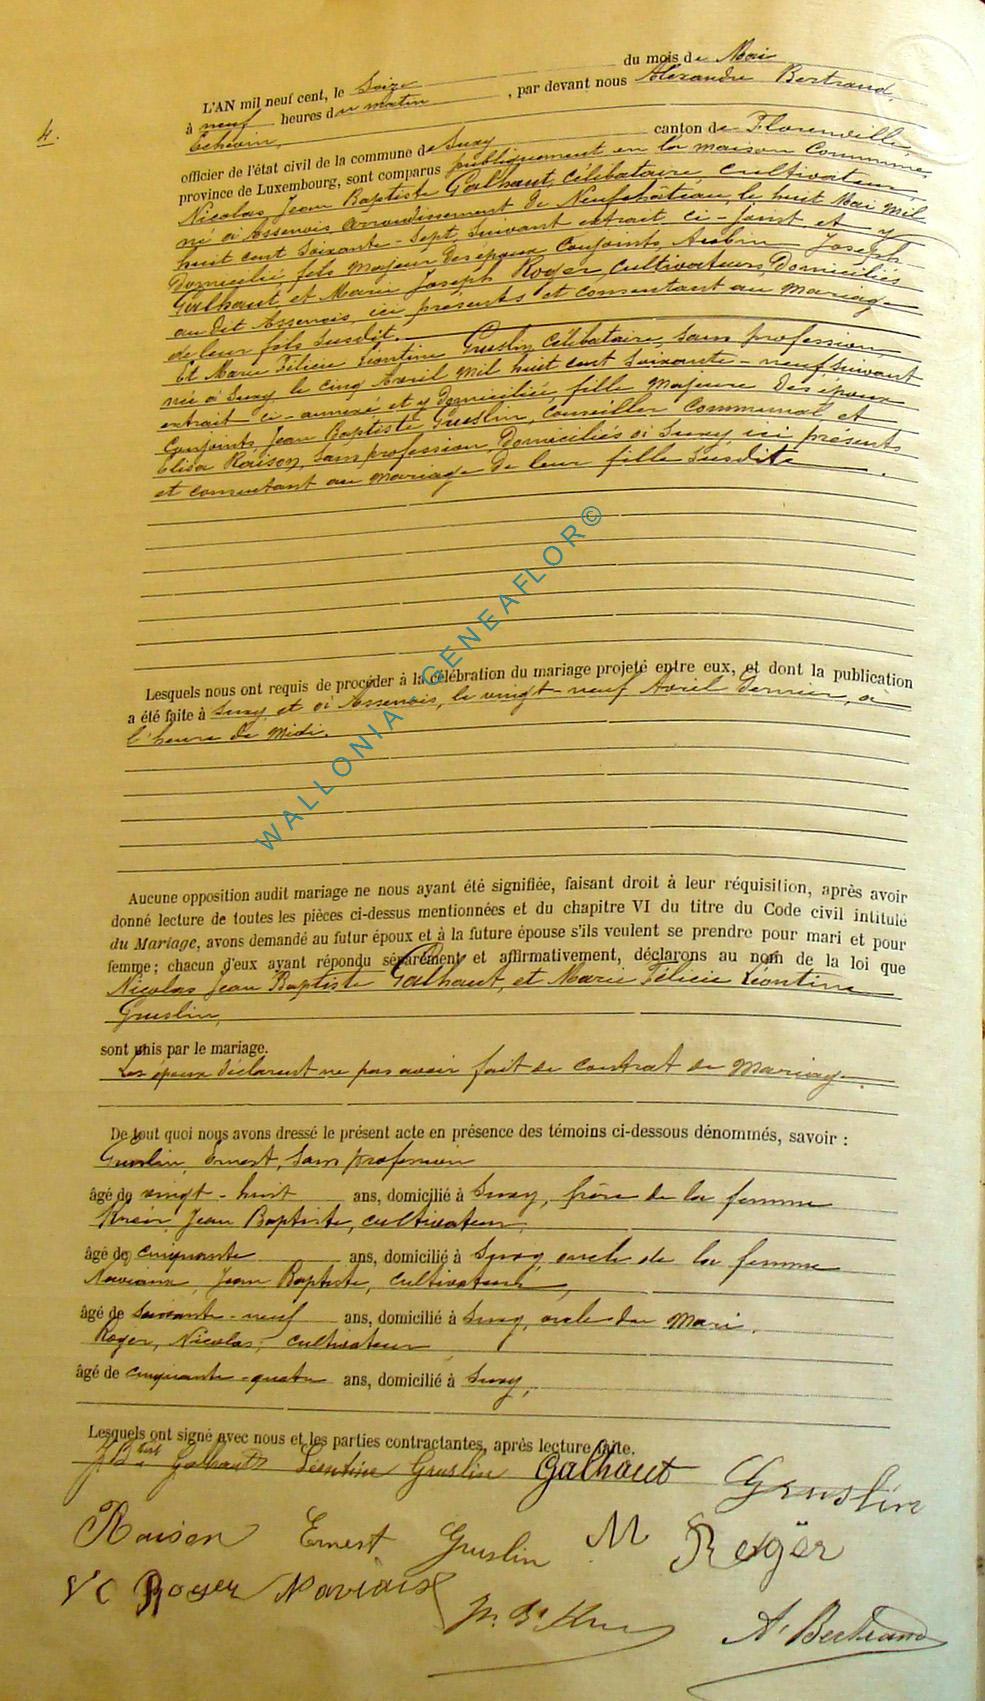 4.
L'AN mil neuf cent, le Seize du mois de Mai
à neuf heures du matin, par devant nous Alexandre Bertrand,
Echevin,
officier de l'état civil de la commune de Suxy canton de Florenville,
province de Luxembourg, sont comparus publiquement en la maison Commune,
Nicolas Jean Baptiste Galhaut, célibataire, cultivateur,
né à Assenois arrondissement de Neufchâteau, le huit Mai mil
huit cent soixante-sept suivant extrait ci-joint et y
domicilié, fils majeur des époux conjoints Aubin Joseph
Galhaut et Marie Joseph Roger, cultivateurs, domiciliés
au dit Assenois, ici présents et consentant au mariage
de leur fils susdit.
Et Marie Félicie Léontine Gruslin, célibataire, sans profession,
née à Suxy, le cinq Avril mil huit cent soixante-neuf, suivant
extrait ci-annexé et y domiciliée, fille majeure des époux
conjoints Jean Baptiste Gruslin, conseiller communal et
Elisa Raison, sans profession, domiciliés à Suxy, ici présents
et consentant au mariage de leur fille susdite.
Lesquels nous ont requis de procéder à la célébration du mariage projeté entre eux, et dont la publication
a été faite à Suxy et à Assenois, le vingt-neuf Avril dernier, à
l'heure de midi.
WALLONIA - GENEAFLOR©
Aucune opposition audit mariage ne nous ayant été signifiée, faisant droit à leur réquisition, après avoir
donné lecture de toutes les pièces ci-dessus mentionnées et du chapitre VI du titre du Code civil intitulé
du Mariage, avons demandé au futur époux et à la future épouse s'ils veulent se prendre pour mari et pour
femme; chacun d'eux ayant répondu séparément et affirmativement, déclarons au nom de la loi que
Nicolas Jean Baptiste Galhaut, et Marie Félicie Léontine
Gruslin,
sont unis par le mariage.
Les époux déclarent ne pas avoir fait de contrat de mariage.
De tout quoi nous avons dressé le présent acte en présence des témoins ci-dessous dénommés, savoir :
Gruslin, Ernest, sans profession
âgé de vingt-huit ans, domicilié à Suxy, frère de la femme
Jean Baptiste, cultivateur,
âgé de cinquante ans, domicilié à Suxy, oncle de la femme
Naviaux, Jean Baptiste, cultivateur,
âgé de soixante-neuf ans, domicilié à Suxy, oncle du Mari,
Roger, Nicolas, cultivateur
âgé de cinquante-quatre ans, domicilié à Suxy,
Lesquels ont signé avec nous et les parties contractantes, après lecture faite.
J Btiste Galhaut Léontine Gruslin Galhaut Gruslin
Raison Ernest Gruslin M Roger
Roger Naviaux
A. Bertrand